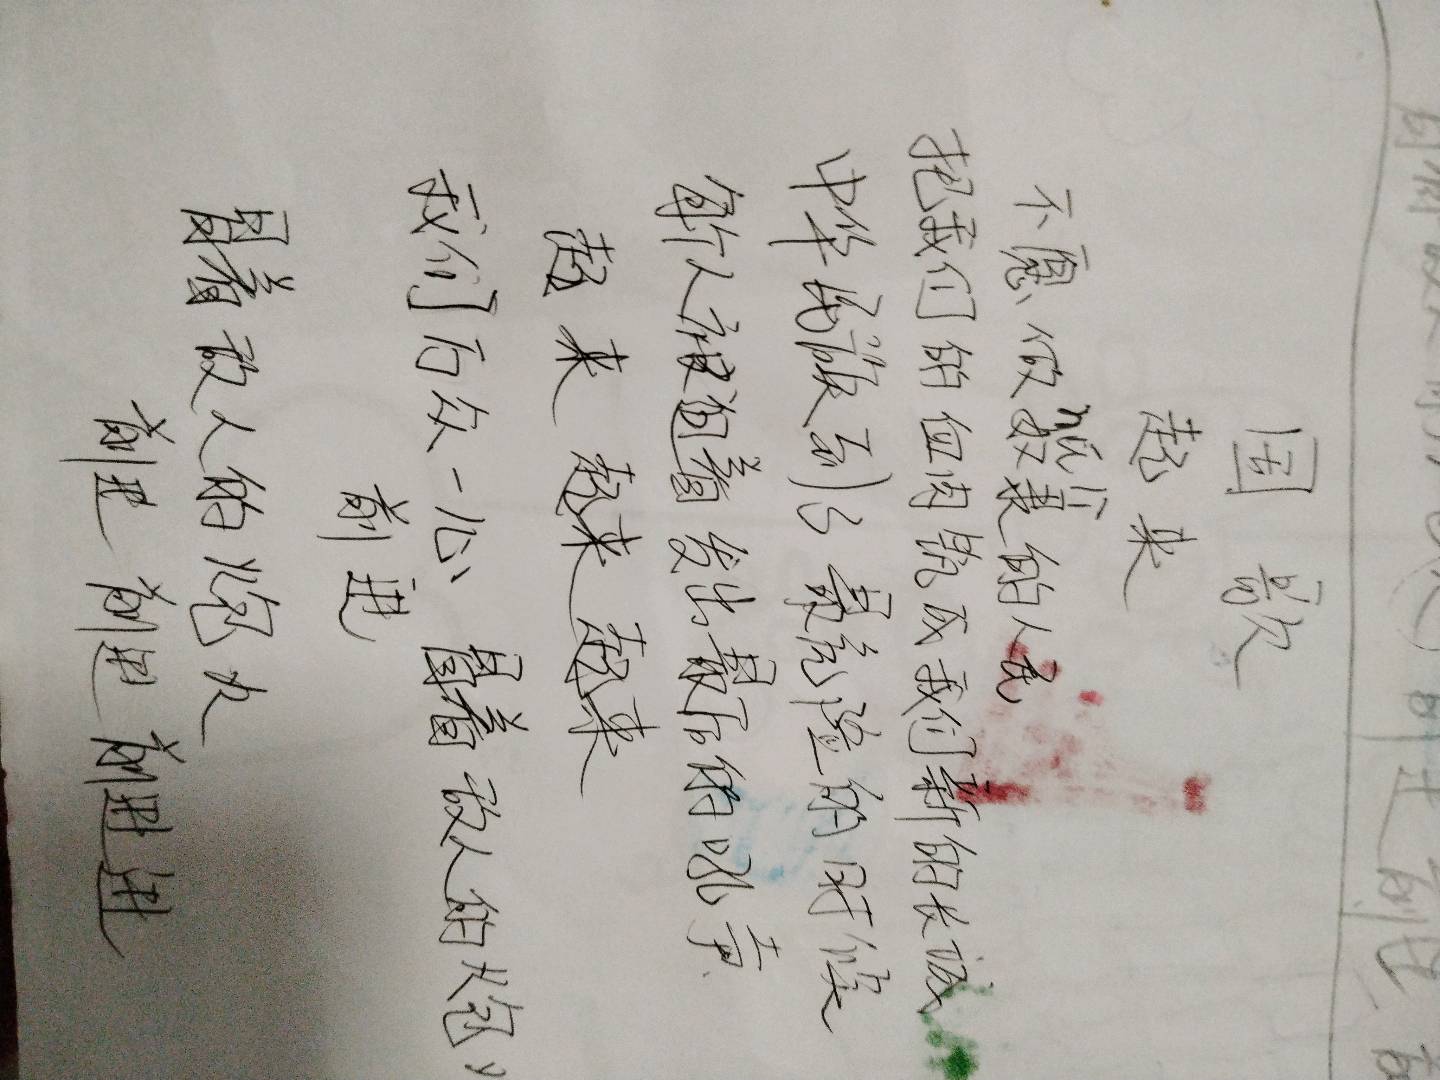 国歌
起来
不愿做奴隶的人民
把我们的血肉筑成我们新的长城
中华民族到了最危险的时候
每个人被迫着发出最后的吼声
起来 起来 起来
我们万众一心 冒着敌人的炮火
前进
冒着敌人的炮火
前进 前进 前进 进